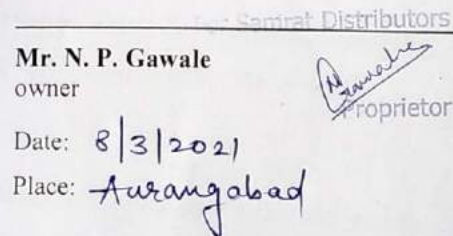 For: Samrat Distributors
Mr. N. P. Gawale
owner
Proprietor
Date: 8/3/2021
Place: Aurangabad